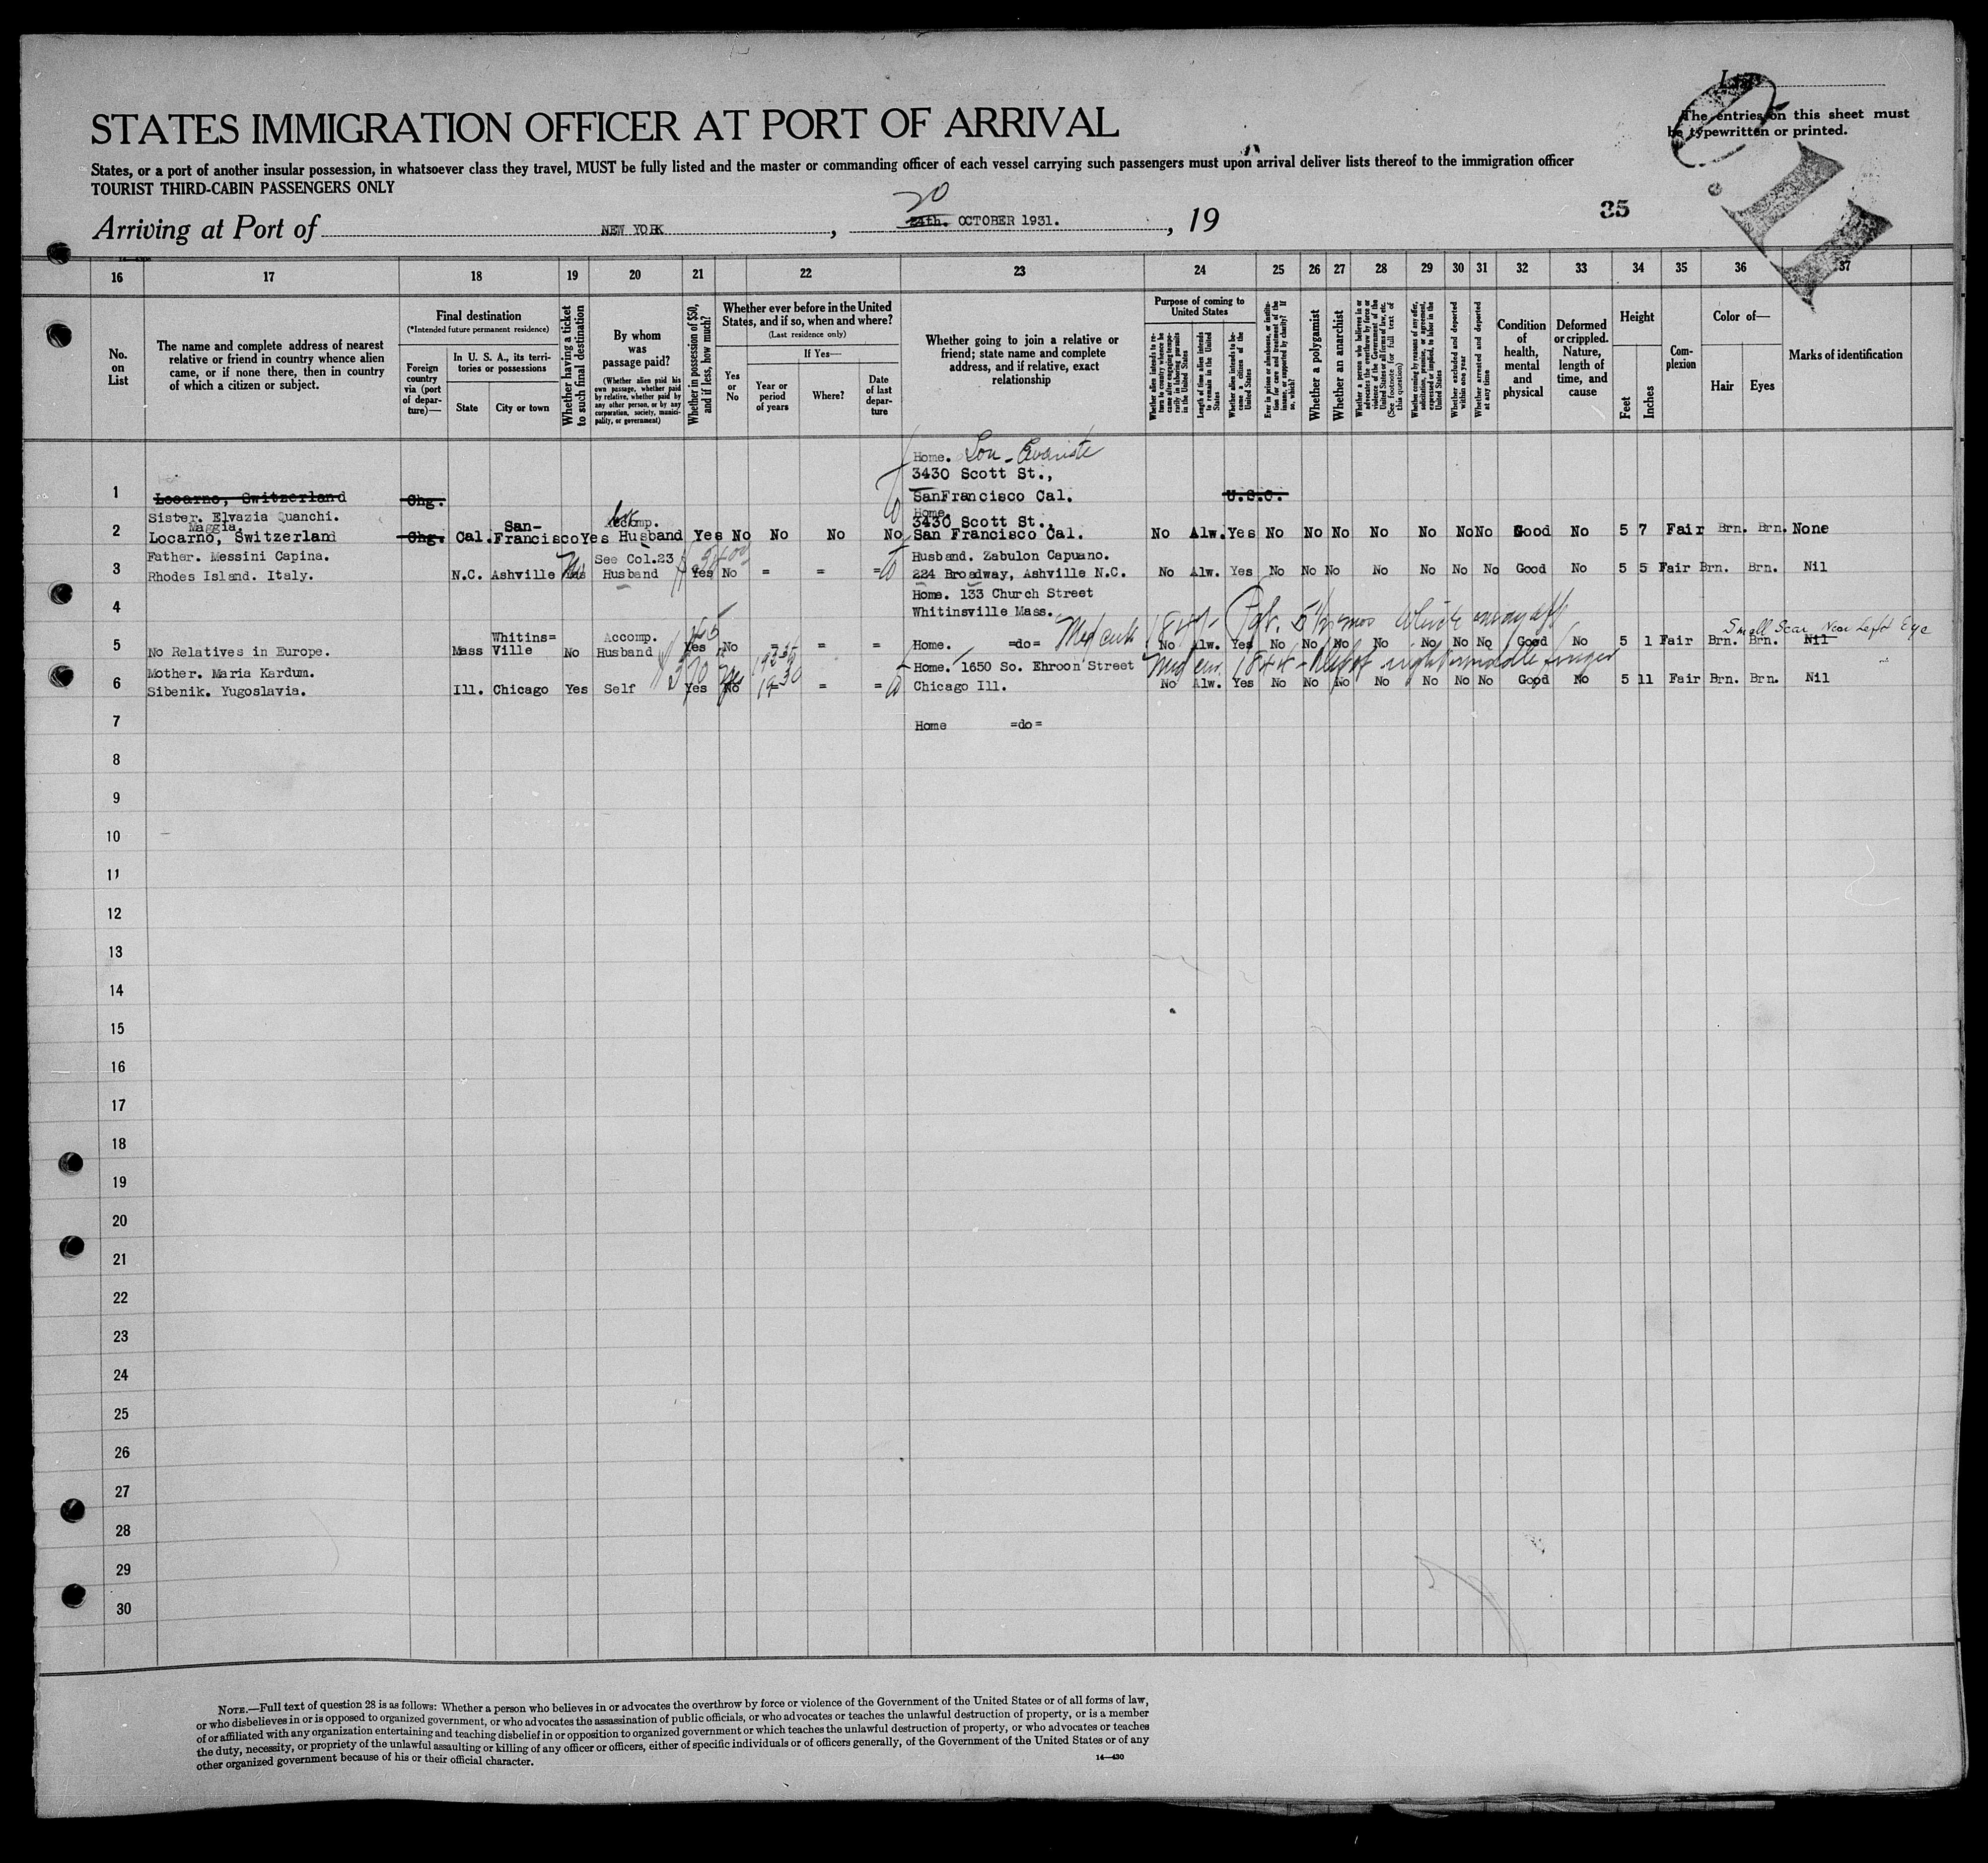 List
STATES IMMIGRATION OFFICER AT PORT OF ARRIVAL
The entries on this sheet must
be typewritten or printed.
States, or a port of another insular possession, in whatsoever class they travel, MUST be fully listed and the master or commanding officer of each vessel carrying such passengers must upon arrival deliver lists thereof to the immigration officer
TOURIST THIRD-CABIN PASSENGERS ONLY
30
Arriving at Port of NEW YORK, 24th. OCTOBER 1931., 19
35
16 17 18 19 20 21 22 23 24 25 26 27 28 29 30 31 32 33 34 35 36 37
No. on List
The name and complete address of nearest relative or friend in country whence alien came, or if none there, then in country of which a citizen or subject.
Final destination
(*Intended future permanent residence)
Foreign country via (port of departure)—
In U. S. A., its territories or possessions
State
City or town
Whether having a ticket to such final destination
By whom was passage paid?
(Whether alien paid his own passage, whether paid by relative, whether paid by any other person, or by any corporation, society, municipality, or government)
Whether in possession of $50, and if less, how much?
Whether ever before in the United States, and if so, when and where?
(Last residence only)
Yes or No
If Yes—
Year or period of years
Where?
Date of last departure
Whether going to join a relative or friend; state name and complete address, and if relative, exact relationship
Purpose of coming to United States
Whether alien intends to return to country whence he came after engaging temporarily in laboring pursuits in the United States
Length of time alien intends to remain in the United States
Whether alien intends to become a citizen of the United States
Ever in prison or almshouse, or institution for care and treatment of the insane, or supported by charity? If so, which?
Whether a polygamist
Whether an anarchist
Whether a person who believes in or advocates the overthrow by force or violence of the Government of the United States or all forms of law, etc. (See footnote for full text of this question)
Whether coming by reasons of any offer, solicitation, promise, or agreement, expressed or implied, to labor in the United States
Whether excluded and deported within one year
Whether arrested and deported at any time
Condition of health, mental and physical
Deformed or crippled. Nature, length of time, and cause
Height
Feet
Inches
Complexion
Color of—
Hair
Eyes
Marks of identification
Home. Son - Evariste
3430 Scott St.,
1 Locarno, Switzerland Chg. SanFrancisco Cal. U.S.C.
Sister. Elvazia Quanchi. Home.
Maggia. San- Accomp. 3430 Scott St.,
2 Locarno, Switzerland Chg. Cal. Francisco Yes Husband Yes No No No No San Francisco Cal. No Alw. Yes No No No No No No No Good No 5 7 Fair Brn. Brn. None
Father. Messini Capina. See Col.23 Husband. Zabulon Capuano.
3 Rhodes Island. Italy. N.C. Ashville Yes Husband Yes No = = = 224 Broadway, Ashville N.C. No Alw. Yes No No No No No No No Good No 5 5 Fair Brn. Brn. Nil
Home. 133 Church Street
4 Whitinsville Mass.
Whitins= Accomp. Small Scar Near Left Eye
5 No Relatives in Europe. Mass Ville No Husband Yes No = = Home. =do= No Alw. Yes No No No No No No No Good No 5 1 Fair Brn. Brn. Nil
Mother. Maria Kardum. Home. 1650 So. Ehroon Street
6 Sibenik. Yugoslavia. Ill. Chicago Yes Self Yes No 1930 = = Chicago Ill. No Alw. Yes No No No No No No No Good No 5 11 Fair Brn. Brn. Nil
7 Home =do=
8
9
10
11
12
13
14
15
16
17
18
19
20
21
22
23
24
25
26
27
28
29
30
NOTE.—Full text of question 28 is as follows: Whether a person who believes in or advocates the overthrow by force or violence of the Government of the United States or of all forms of law,
or who disbelieves in or is opposed to organized government, or who advocates the assassination of public officials, or who advocates or teaches the unlawful destruction of property, or is a member
of or affiliated with any organization entertaining and teaching disbelief in or opposition to organized government or which teaches the unlawful destruction of property, or who advocates or teaches
the duty, necessity, or propriety of the unlawful assaulting or killing of any officer or officers, either of specific individuals or of officers generally, of the Government of the United States or of any
other organized government because of his or their official character.
14—430